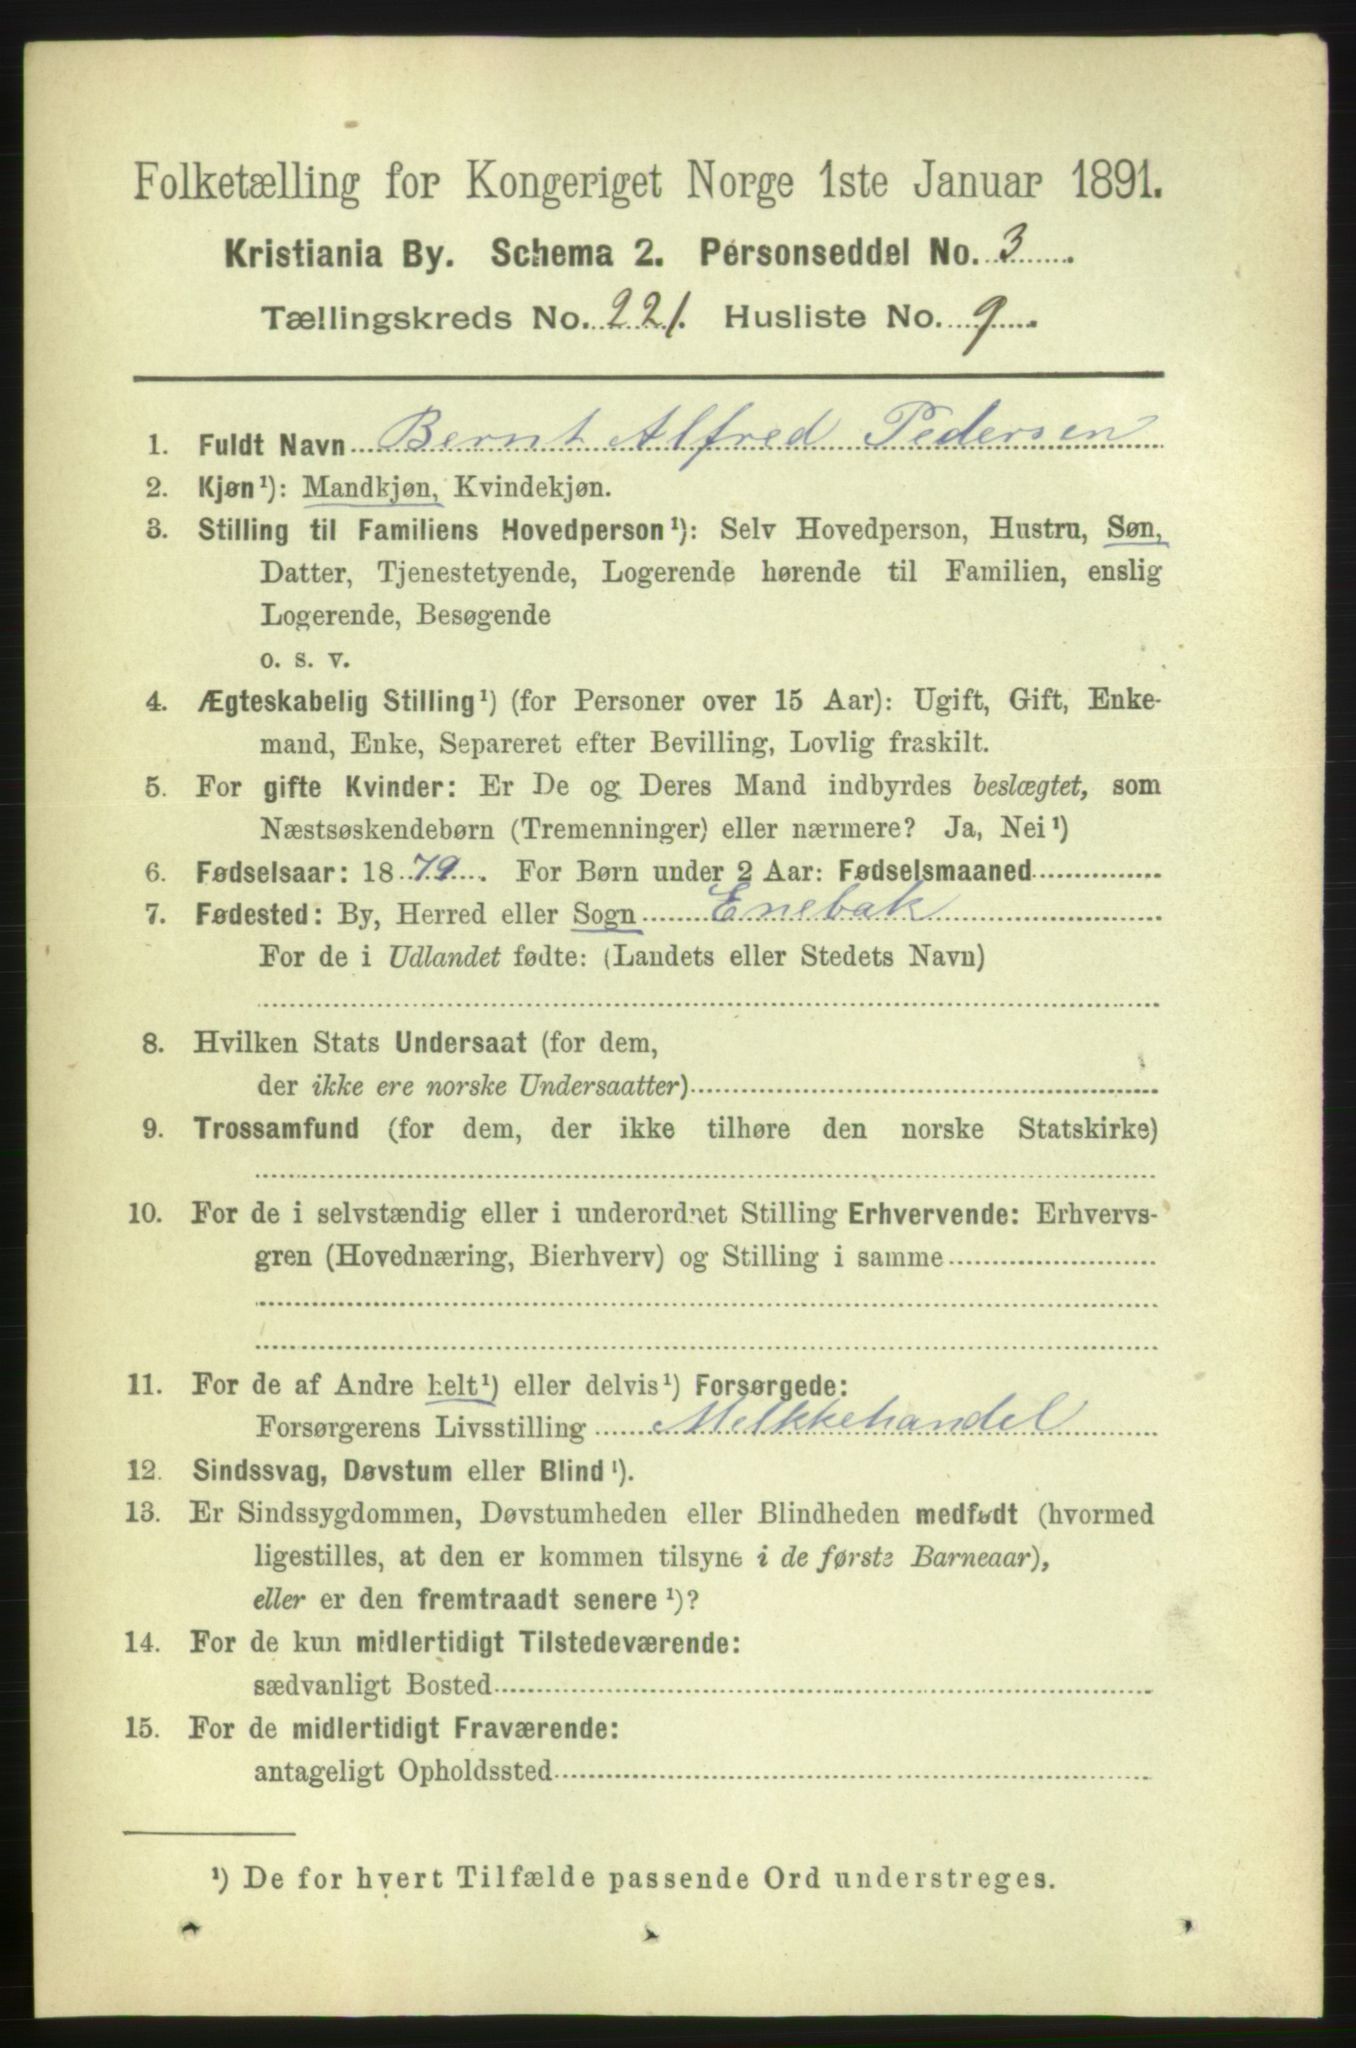 Folketælling for Kongeriget Norge 1ste Januar 1891.
Kristiania By. Schema 2. Personseddel No. 3
Tællingskreds No. 221. Husliste No. 9
1. Fuldt Navn Bernt Alfred Pedersen
2. Kjøn¹): Mandkjøn, Kvindekjøn.
3. Stilling til Familiens Hovedperson¹): Selv Hovedperson, Hustru, Søn,
Datter, Tjenestetyende, Logerende hørende til Familien, enslig
Logerende, Besøgende
o. s. v.
4. Ægteskabelig Stilling¹) (for Personer over 15 Aar): Ugift, Gift, Enke-
mand, Enke, Separeret efter Bevilling, Lovlig fraskilt.
5. For gifte Kvinder: Er De og Deres Mand indbyrdes beslægtet, som
Næstsøskendebørn (Tremenninger) eller nærmere? Ja, Nei¹)
6. Fødselsaar: 1879. For Børn under 2 Aar: Fødselsmaaned
7. Fødested: By, Herred eller Sogn Enebak
For de i Udlandet fødte: (Landets eller Stedets Navn)
8. Hvilken Stats Undersaat (for dem,
der ikke ere norske Undersaatter)
9. Trossamfund (for dem, der ikke tilhøre den norske Statskirke)
10. For de i selvstændig eller i underordnet Stilling Erhvervende: Erhvervs-
gren (Hovednæring, Bierhverv) og Stilling i samme
11. For de af Andre helt¹) eller delvis¹) Forsørgede:
Forsørgerens Livsstilling Melkkehandel
12. Sindssvag, Døvstum eller Blind¹).
13. Er Sindssygdommen, Døvstumheden eller Blindheden medfødt (hvormed
ligestilles, at den er kommen tilsyne i de første Barneaar),
eller er den fremtraadt senere¹)?
14. For de kun midlertidigt Tilstedeværende:
sædvanligt Bosted
15. For de midlertidigt Fraværende:
antageligt Opholdssted
¹) De for hvert Tilfælde passende Ord understreges.